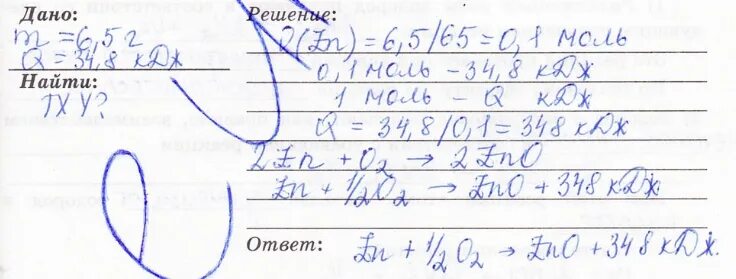 Дано:
m = 6,5 г
Q = 34,8 кДж
Найти:
ТХУ?
Решение:
ν(Zn) = 6,5/65 = 0,1 моль
0,1 моль – 34,8 кДж
1 моль – Q кДж
Q = 34,8/0,1 = 348 кДж
2Zn + O₂ → 2ZnO
Zn + 1/2O₂ → ZnO + 348 кДж.
Ответ: Zn + 1/2 O₂ → ZnO + 348 кДж.